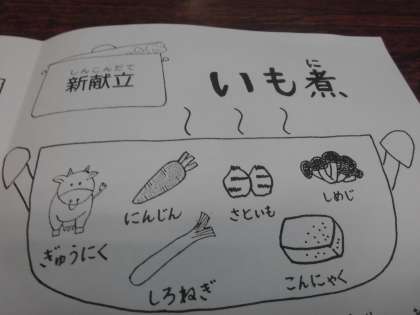 しんこんだて
新献立
いも煮
に
ぎゅうにく
にんじん
さといも
しめじ
しろねぎ
こんにゃく